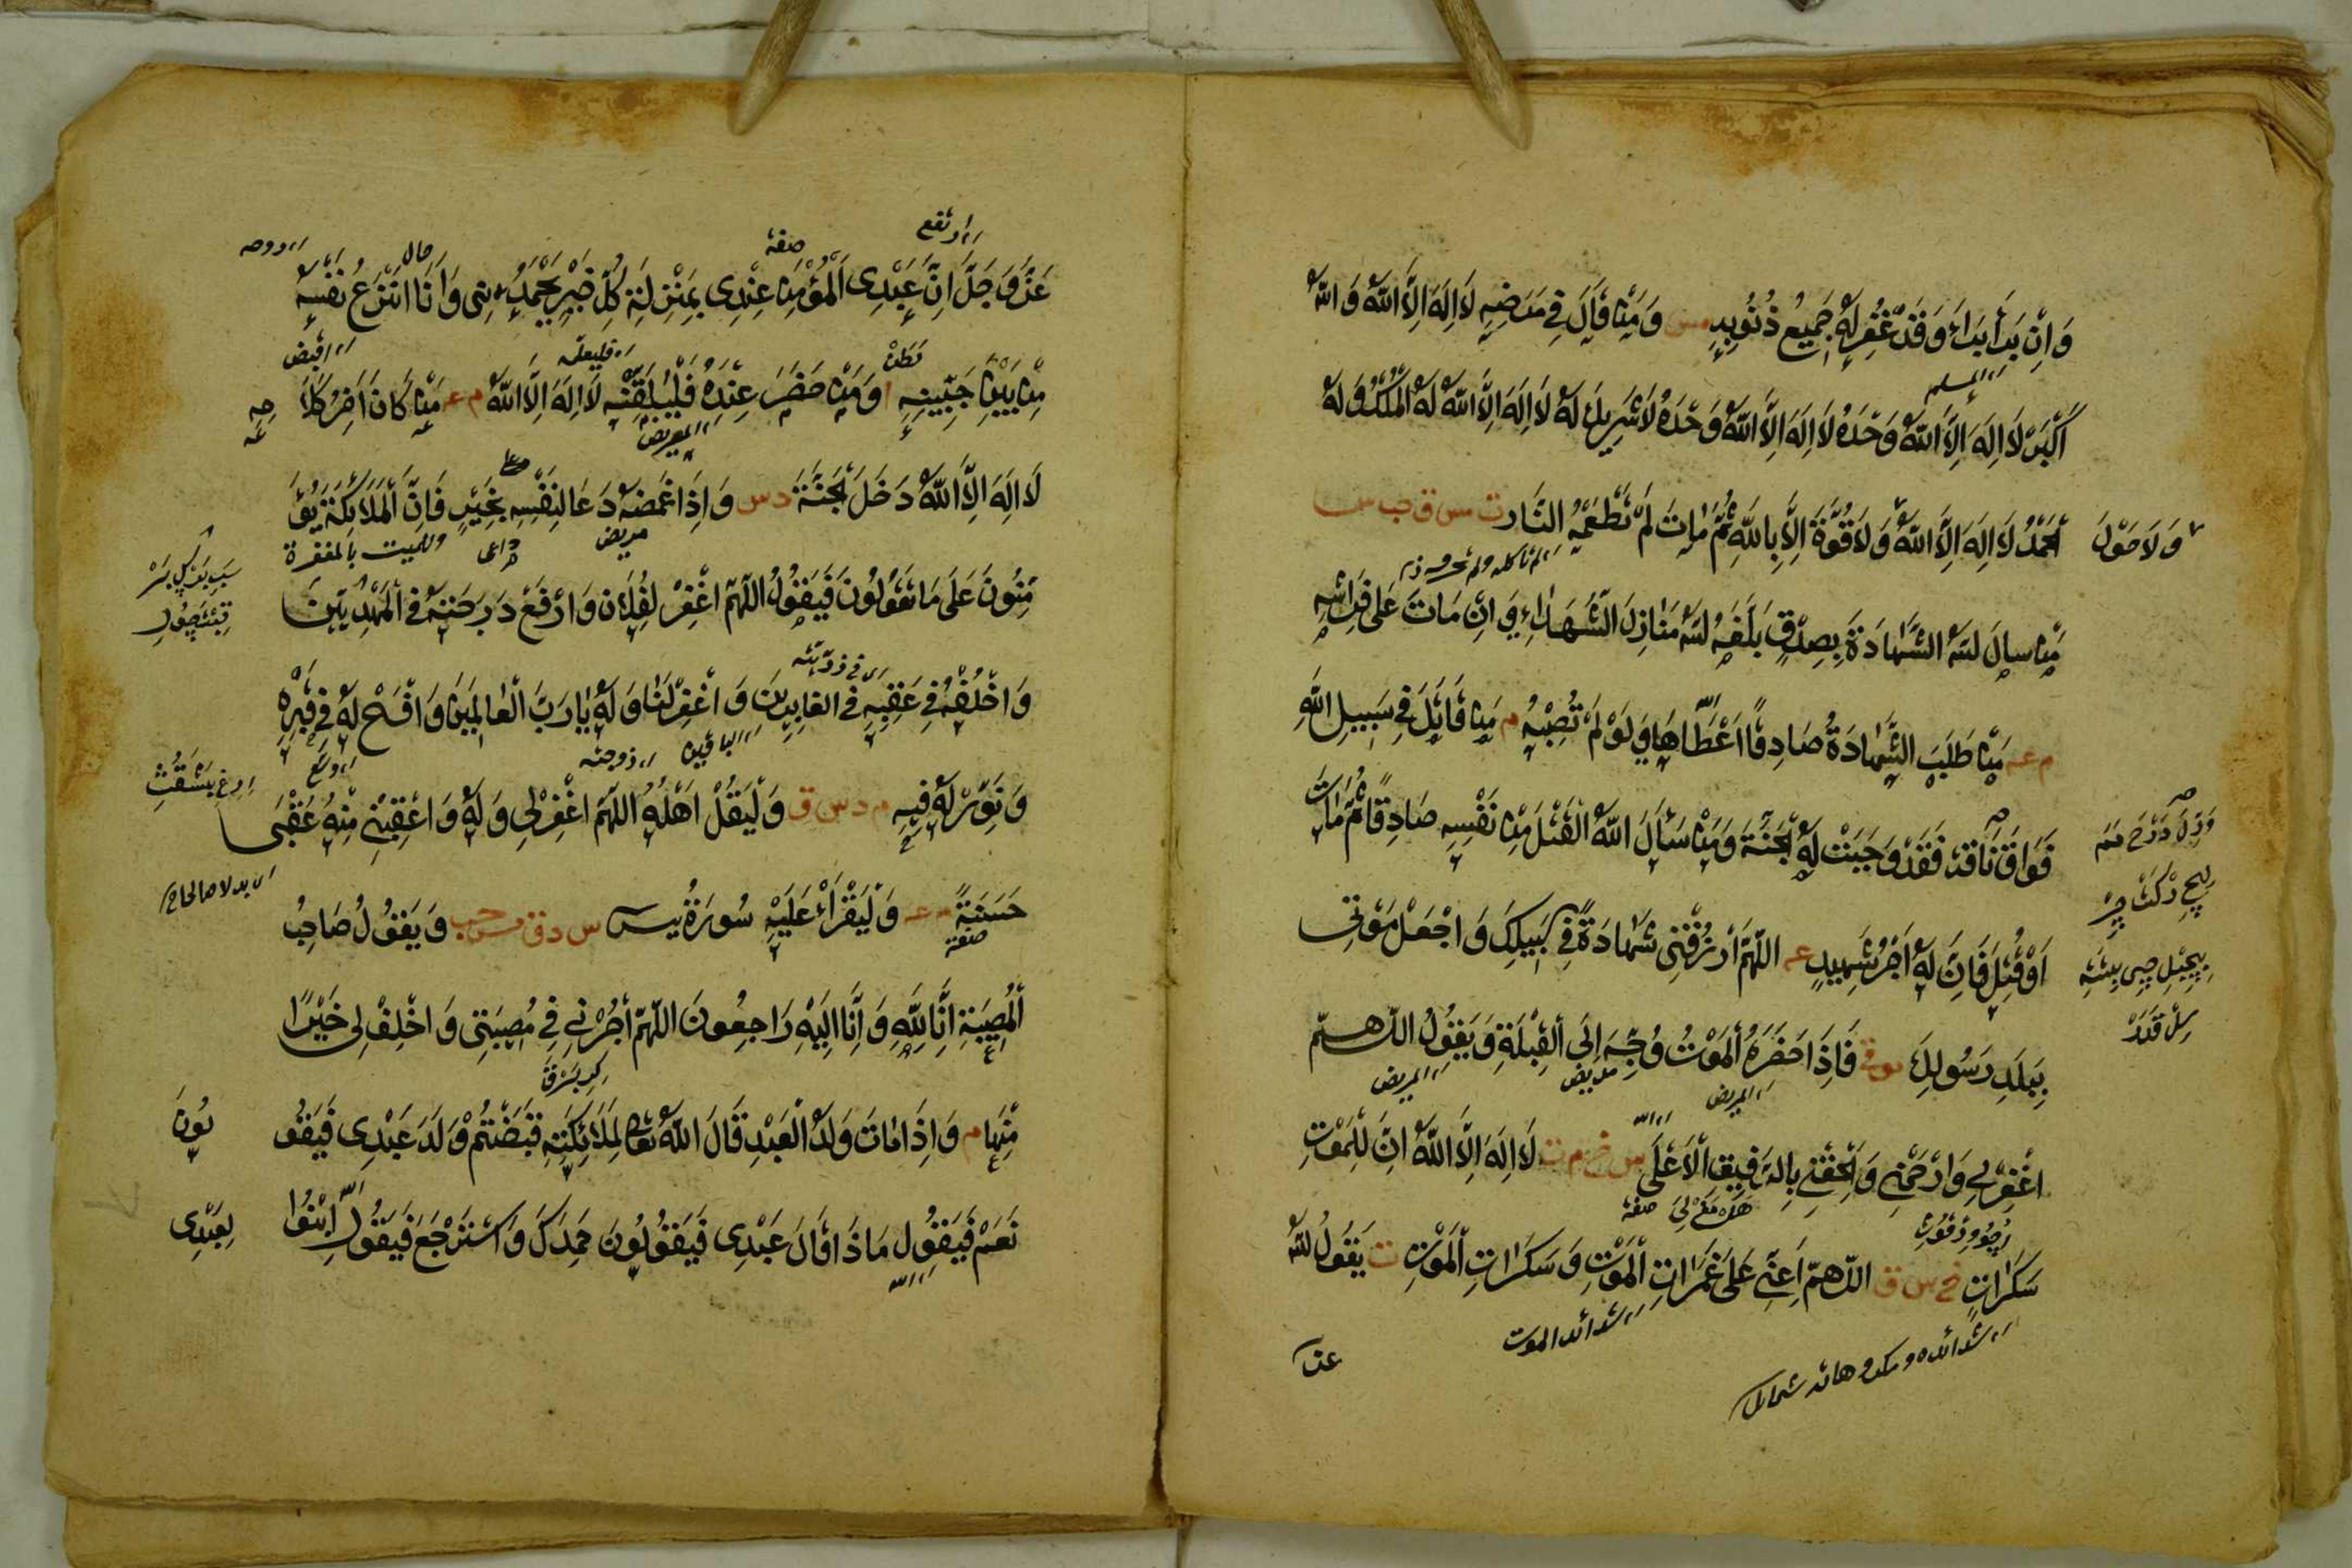 وَاِنْ بَرَأَ بَرَاءَ وَقَدْ غُفِرَ لَهُ جَمِيعُ ذُنُوبِهِ مس وَمَنْ قَالَ فِي مَرَضِهِ لَا اِلَهَ اِلَّا اللّٰهُ وَاللّٰهُ
المسلم
اَكْبَرُ لَا اِلَهَ اِلَّا اللّٰهُ وَحْدَهُ لَا اِلَهَ اِلَّا اللّٰهُ وَحْدَهُ لَا شَرِيكَ لَهُ لَا اِلَهَ اِلَّا اللّٰهُ لَهُ الْمُلْكُ وَلَهُ
وَلَا حَوْلَ
الْحَمْدُ لَا اِلَهَ اِلَّا اللّٰهُ وَلَا قُوَّةَ اِلَّا بِاللّٰهِ ثُمَّ مَاتَ لَمْ تَطْعَمْهُ النَّار ت س ق حب مس
مَنْ سَاَلَ اللّٰهَ الشَّهَادَةَ بِصِدْقٍ بَلَغَهُ اللّٰهُ مَنَازِلَ الشُّهَدَاءِ وَاِنْ مَاتَ عَلَى فِرَاشِهِ
م عه مَنْ طَلَبَ الشَّهَادَةَ صَادِقًا اُعْطَاهَا وَلَوْ لَمْ تُصِبْهُ م مَنْ قَاتَلَ فِي سَبِيلِ اللّٰهِ
فَوَاقَ نَاقَة فَقَدْ وَجَبَتْ لَهُ الْجَنَّةَ وَمَنْ سَأَلَ اللّٰهَ الْقَتْلَ مِنْ نَفْسِهِ صَادِقًا ثُمَّ مَاتَ
اَوْ قُتِلَ فَاِنَّ لَهُ اَجْرُ شَهِيدٍ عه اَللّٰهُمَّ ارْزُقْنِي شَهَادَةً فِي سَبِيلِكَ وَاجْعَلْ مَوْتِي
بِبَلَدِ رَسُولِكَ فَاِذَا حَضَرَهُ الْمَوْتُ وُجِّهَ اِلَى الْقِبْلَةِ وَيَقُولُ اللّٰهُمَّ
المريض
مريض
المريض
اغْفِرْ لِي وَارْحَمْنِي وَاَلْحِقْنِي بِالرَّفِيقِ الْاَعْلَى خ م ت لَا اِلَهَ اِلَّا اللّٰهُ اِنَّ لِلْمَوْتِ
صفة
سَكَرَاتٍ خ س ق اَللّٰهُمَّ اَعِنِّي عَلَى غَمَرَاتِ الْمَوْتِ وَسَكَرَاتِ الْمَوْتِ ت يَقُولُ اللّٰهُ
شدائد الموت
عز
ارتفع
صفة
حال
عَزَّ وَجَلَّ اِنَّ عَبْدِي الْمُؤْمِنَ عِنْدِي بِمَنْزِلَة كُلِّ خَيْرٍ يَحْمَدُنِي وَاَنَا اَنْزِعُ نَفْسَهُ
اقبض
مِنْ بَيْنِ جَنْبَيْهِ ا وَمَنْ حَضَرَ عِنْدَهُ فَلْيُلَقِّنْهُ لَا اِلَهَ اِلَّا اللّٰهُ م عه مَنْ كَانَ اٰخِرُ كَلَا
مِهِ
المريض
لَا اِلَهَ اِلَّا اللّٰهُ دَخَلَ الْجَنَّةَ د س وَاِذَا غَمَّضَهُ دَعَا لِنَفْسِهِ بِخَيْرٍ فَاِنَّ الْمَلَائِكَةَ يُؤَ
مريض
داعى
وللميت بالمغفرة
مِّنُونَ عَلَى مَا تَقُولُونَ فَيَقُولُ اللّٰهُمَّ اغْفِرْ لِفُلَان وَارْفَعْ دَرَجَتَهُ فِي الْمَهْدِيِّينَ
اى فى ذريته
وَاخْلُفْهُ فِي عَقِبِهِ فِي الْغَابِرِينَ وَاغْفِرْ لَنَا وَلَهُ يَا رَبَّ الْعَالَمِينَ وَافْسَحْ لَهُ فِي قَبْرِهِ
الباقين
زوجته
وَنَوِّرْ لَهُ فِيهِ م د س ق وَلْيَقُلْ اَهْلُهُ اللّٰهُمَّ اغْفِرْ لِي وَلَهُ وَاعْقِبْنِي مِنْهُ عُقْبَى
اى بدلا صالحا
حَسَنَةً م عه وَلْيَقْرَأْ عَلَيْهِ سُورَةُ يس س د ق حب وَيَقُولُ صَاحِبُ
صفة
الْمُصِيبَةِ اِنَّا لِلّٰهِ وَاِنَّا اِلَيْهِ رَاجِعُونَ اللّٰهُمَّ أْجُرْنِي فِي مُصِيبَتِي وَاخْلِفْ لِي خَيْرًا
مِنْهَا م وَاِذَا مَاتَ وَلَدُ الْعَبْدِ قَالَ اللّٰهُ تَعَالَى لِمَلَائِكَتِهِ قَبَضْتُمْ وَلَدَ عَبْدِي فَيَقُو
لُونَ
نَعَمْ فَيَقُولُ مَاذَا قَالَ عَبْدِي فَيَقُولُونَ حَمِدَكَ وَاسْتَرْجَعَ فَيَقُولُ ابْنُوا
لِعَبْدِي